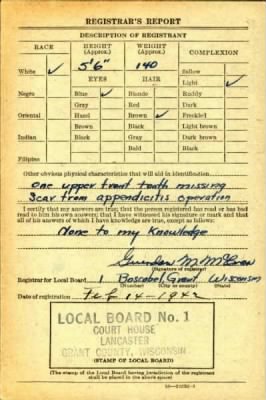 REGISTRAR'S REPORT
DESCRIPTION OF REGISTRANT
RACE HEIGHT (Approx.) WEIGHT (Approx.) COMPLEXION
5'6" 140 Sallow
White ✓ EYES HAIR Light ✓
Negro Blue ✓ Blonde Ruddy
Gray Red Dark
Oriental Hazel Brown ✓ Freckled
Brown Black Light brown
Indian Black Gray Dark brown
Bald Black
Filipino
Other obvious physical characteristics that will aid in identification
one upper front tooth missing
Scar from appendicitis operation
I certify that my answers are true; that the person registered has read or has had read to him his own answers; that I have witnessed his signature or mark and that all of his answers of which I have knowledge are true, except as follows:
None to my Knowledge
(Signature of registrar)
Registrar for Local Board 1 Boscobel, Grant Wisconsin
(Number) (City or county) (State)
Date of registration Feb 14-1942
LOCAL BOARD No. 1
COURT HOUSE
LANCASTER
GRANT COUNTY, WISCONSIN
(STAMP OF LOCAL BOARD)
(The stamp of the Local Board having jurisdiction of the registrant shall be placed in the above space)